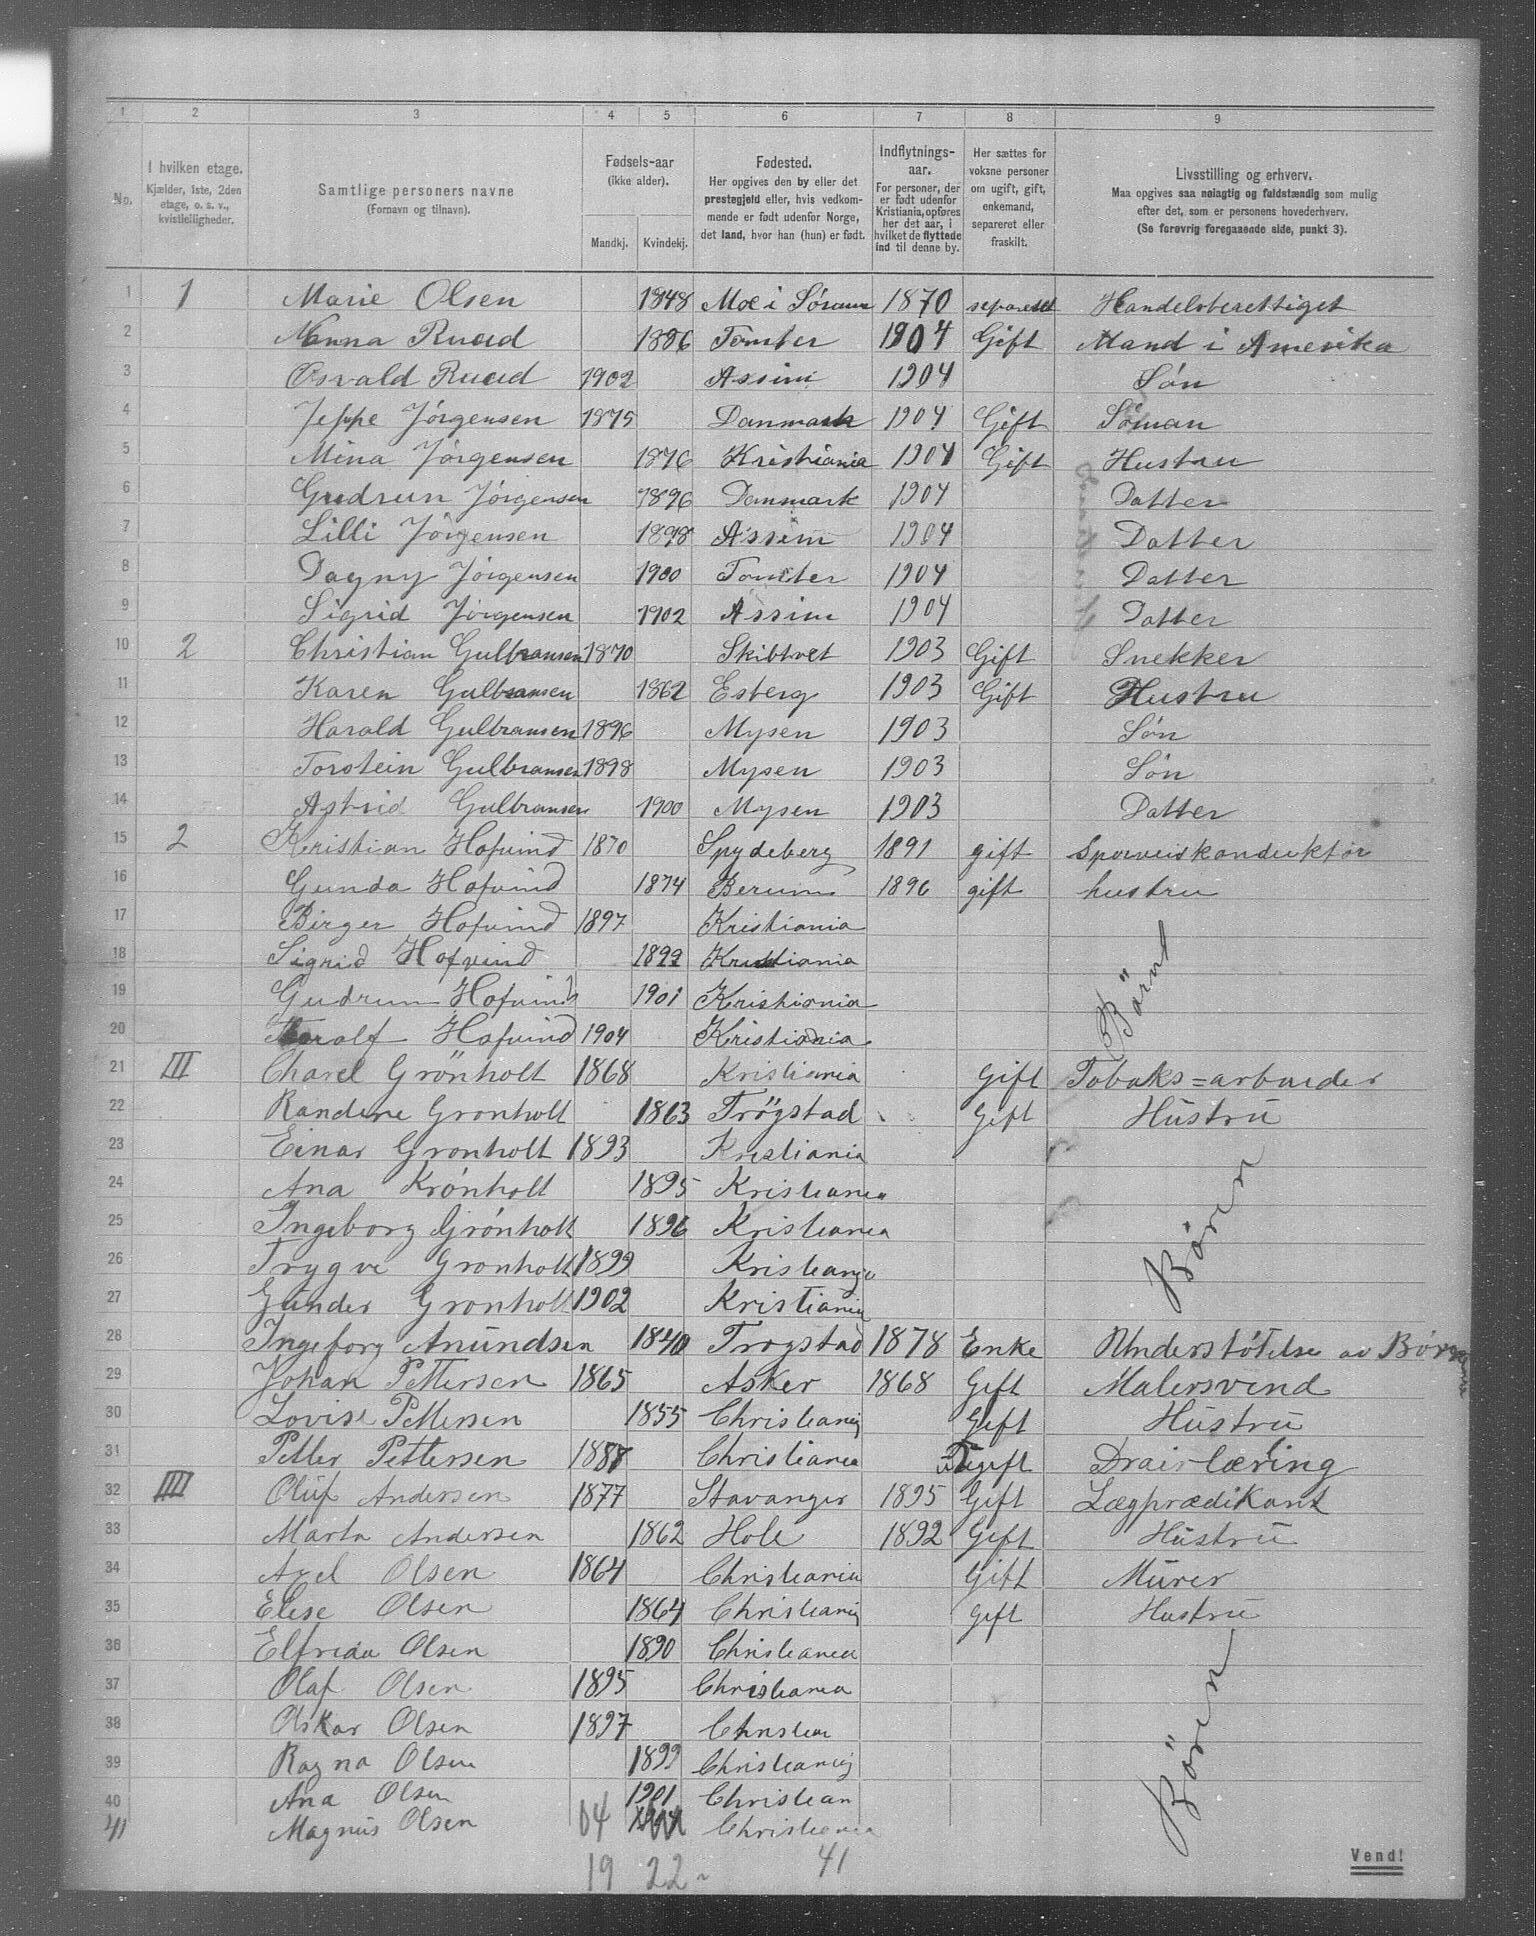 1 2 3 4 5 6 7 8 9
No.
I hvilken etage.
Kjælder, 1ste, 2den
etage, o. s. v.,
kvistleiligheder.
Samtlige personers navne
(Fornavn og tilnavn).
Fødsels-aar
(ikke alder).
Mandkj. Kvindekj.
Fødested.
Her opgives den by eller det
prestegjeld eller, hvis vedkom-
mende er født udenfor Norge,
det land, hvor han (hun) er født.
Indflytnings-
aar.
For personer, der
er født udenfor
Kristiania, opføres
her det aar, i
hvilket de flyttede
ind til denne by.
Her sættes for
voksne personer
om ugift, gift,
enkemand,
separeret eller
fraskilt.
Livsstilling og erhverv.
Maa opgives saa nøiagtig og fuldstændig som mulig
efter det, som er personens hovederhverv.
(Se forøvrig foregaaende side, punkt 3).
1 1 Marie Olsen 1848 Moe i Sørum 1870 separeret Handelsberettiget
2 Nanna Ruud 1886 Tomter 1904 Gift Mand i Amerika
3 Osvald Ruud 1902 Assim 1904 Søn
4 Jeppe Jørgensen 1875 Danmark 1904 Gift Søman
5 Mina Jørgensen 1876 Kristiania 1904 Gift Hustru
6 Gudrun Jørgensen 1896 Danmark 1904 Datter
7 Lilli Jørgensen 1898 Assim 1904 Datter
8 Dagny Jørgensen 1900 Tomter 1904 Datter
9 Sigrid Jørgensen 1902 Assim 1904 Datter
10 2 Christian Gulbransen 1870 Skibtvet 1903 Gift Snekker
11 Karen Gulbransen 1862 Esberg 1903 Gift Hustru
12 Harald Gulbransen 1896 Mysen 1903 Søn
13 Torstein Gulbransen 1898 Mysen 1903 Søn
14 Astrid Gulbransen 1900 Mysen 1903 Datter
15 2 Kristian Hofvind 1870 Spydeberg 1891 gift Sporveiskonduktør
16 Gunda Hofvind 1874 Berum 1896 gift hustru
17 Birger Hofvind 1897 Kristiania
18 Sigrid Hofvind 1899 Kristiania
19 Gudrun Hofvind 1901 Kristiania
20 Toralf Hofvind 1904 Kristiania
Børn
21 III Charel Grönholt 1868 Kristiania Gift Tobaks=arbeider
22 Randine Gronholt 1863 Trögstad Gift Hustru
23 Einar Gronholt 1893 Kristiania
24 Ana Krónholt 1895 Kristiania
25 Ingeborg Grónholt 1896 Kristiania
26 Trygve Gronholt 1899 Kristiania
27 Gunder Gronholt 1902 Kristiania
Børen
28 Ingeborg Anundsen 1840 Trogstad 1878 Enke Understøtelse av Børnene
29 Johan Pettersen 1865 Asker 1868 Gift Malersvend
30 Lovise Pettersen 1855 Christiania Gift Hustru
31 Petter Pettersen 1888 Christiania Ugift Draierlæring
32 IIII Oluf Andersen 1877 Stavanger 1895 Gift Lægprædikant
33 Marta Andersen 1862 Hole 1892 Gift Hustru
34 Axel Olsen 1864 Christiania Gift Murer
35 Elise Olsen 1864 Christiania Gift Hustru
36 Elfrida Olsen 1890 Christiania
37 Olaf Olsen 1895 Christiania
38 Oskar Olsen 1897 Christian
39 Ragna Olsen 1899 Christiania
40 Ana Olsen 1901 Christian
41 Magnus Olsen 04 Christiania
Børen
19 22 41
Vend!